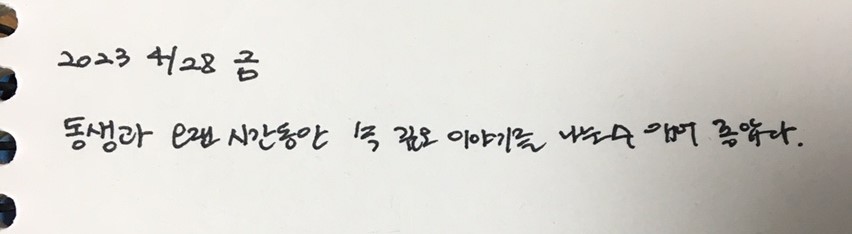 2023 4/28 금
동생과 오랜 시간동안 속 깊은 이야기를 나눌 수 있어 좋았다.